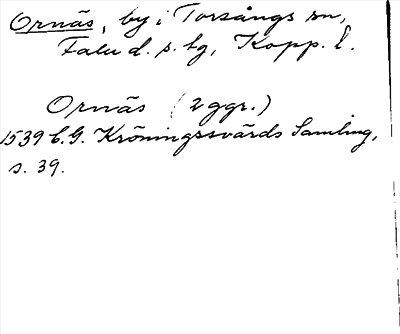 Ornäs, by i Torsångs sn,
Falu d. s. lg, Kopp. l.
Ornäs (2 ggr.)
1539 C.G. Kröningssvärds Samling,
s. 39.